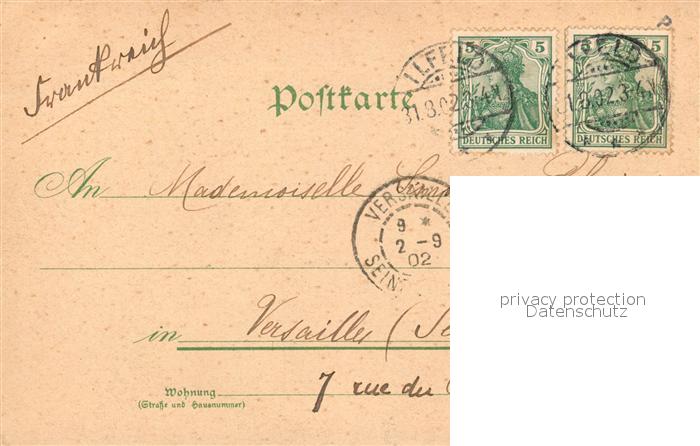 Frankreich
5 5
DEUTSCHES REICH
5 5
DEUTSCHES REICH
ILFELD
31.8.02.3-4N
ILFELD
31.8.02.3-4N
Postkarte
An Mademoiselle
VERSAILLES
9 *
2 - 9
02
SEINE
privacy protection
Datenschutz
in Versailles (Se
Wohnung
(Straße und Hausnummer)
7 rue du